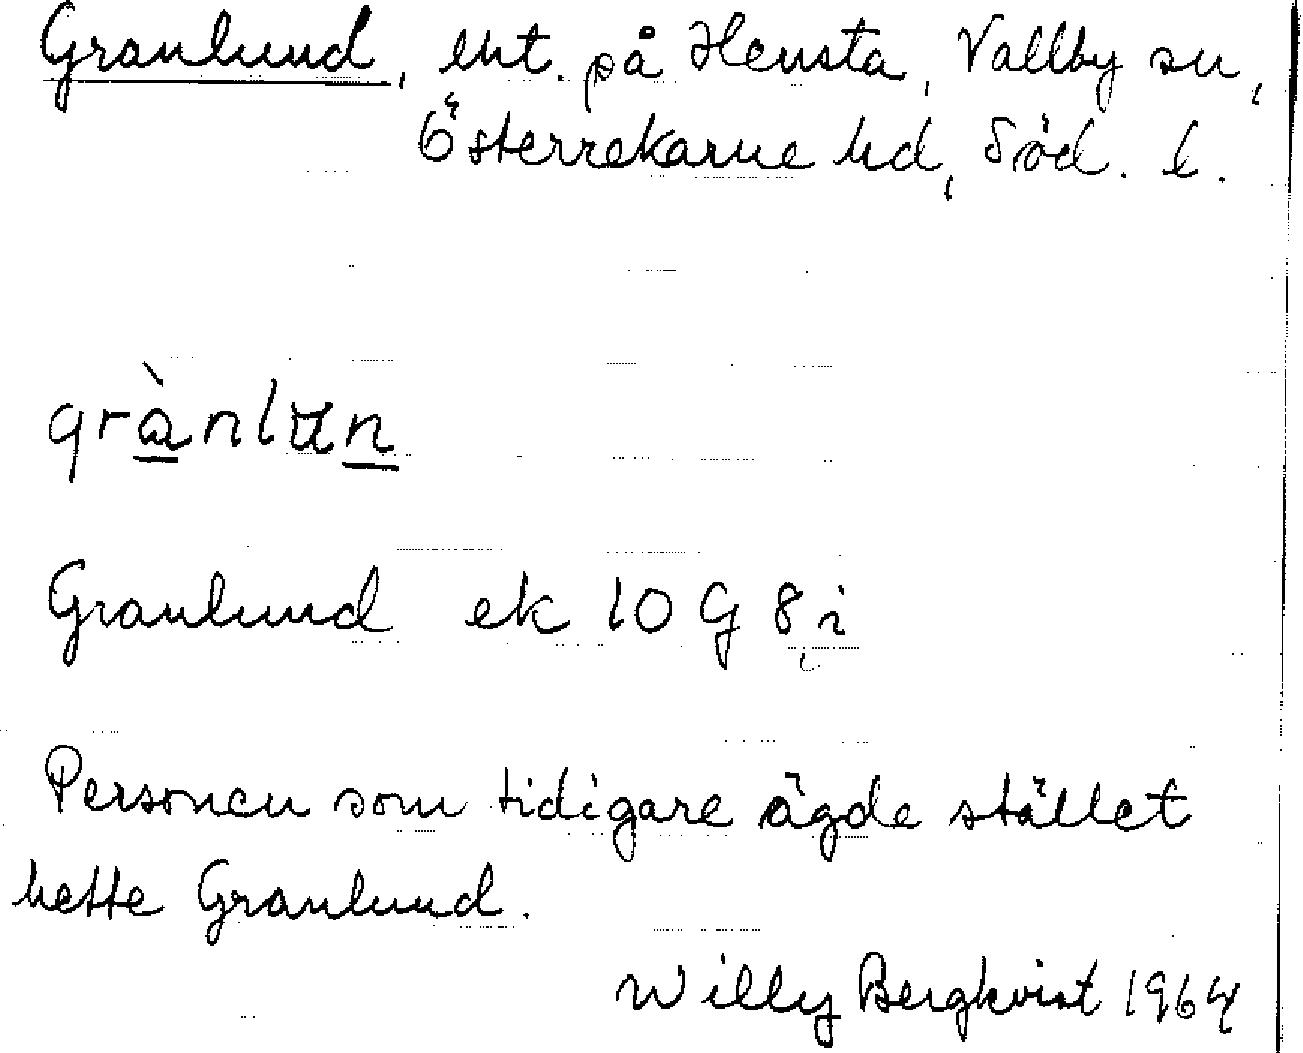 Granlund, lht. på Hensta, Vallby sn,
Österrekarne hd, Söd. l.
grànlun
Granlund ek 10 G 8 i
Personen som tidigare ägde stället
hette Granlund.
Willy Bergkvist 1964